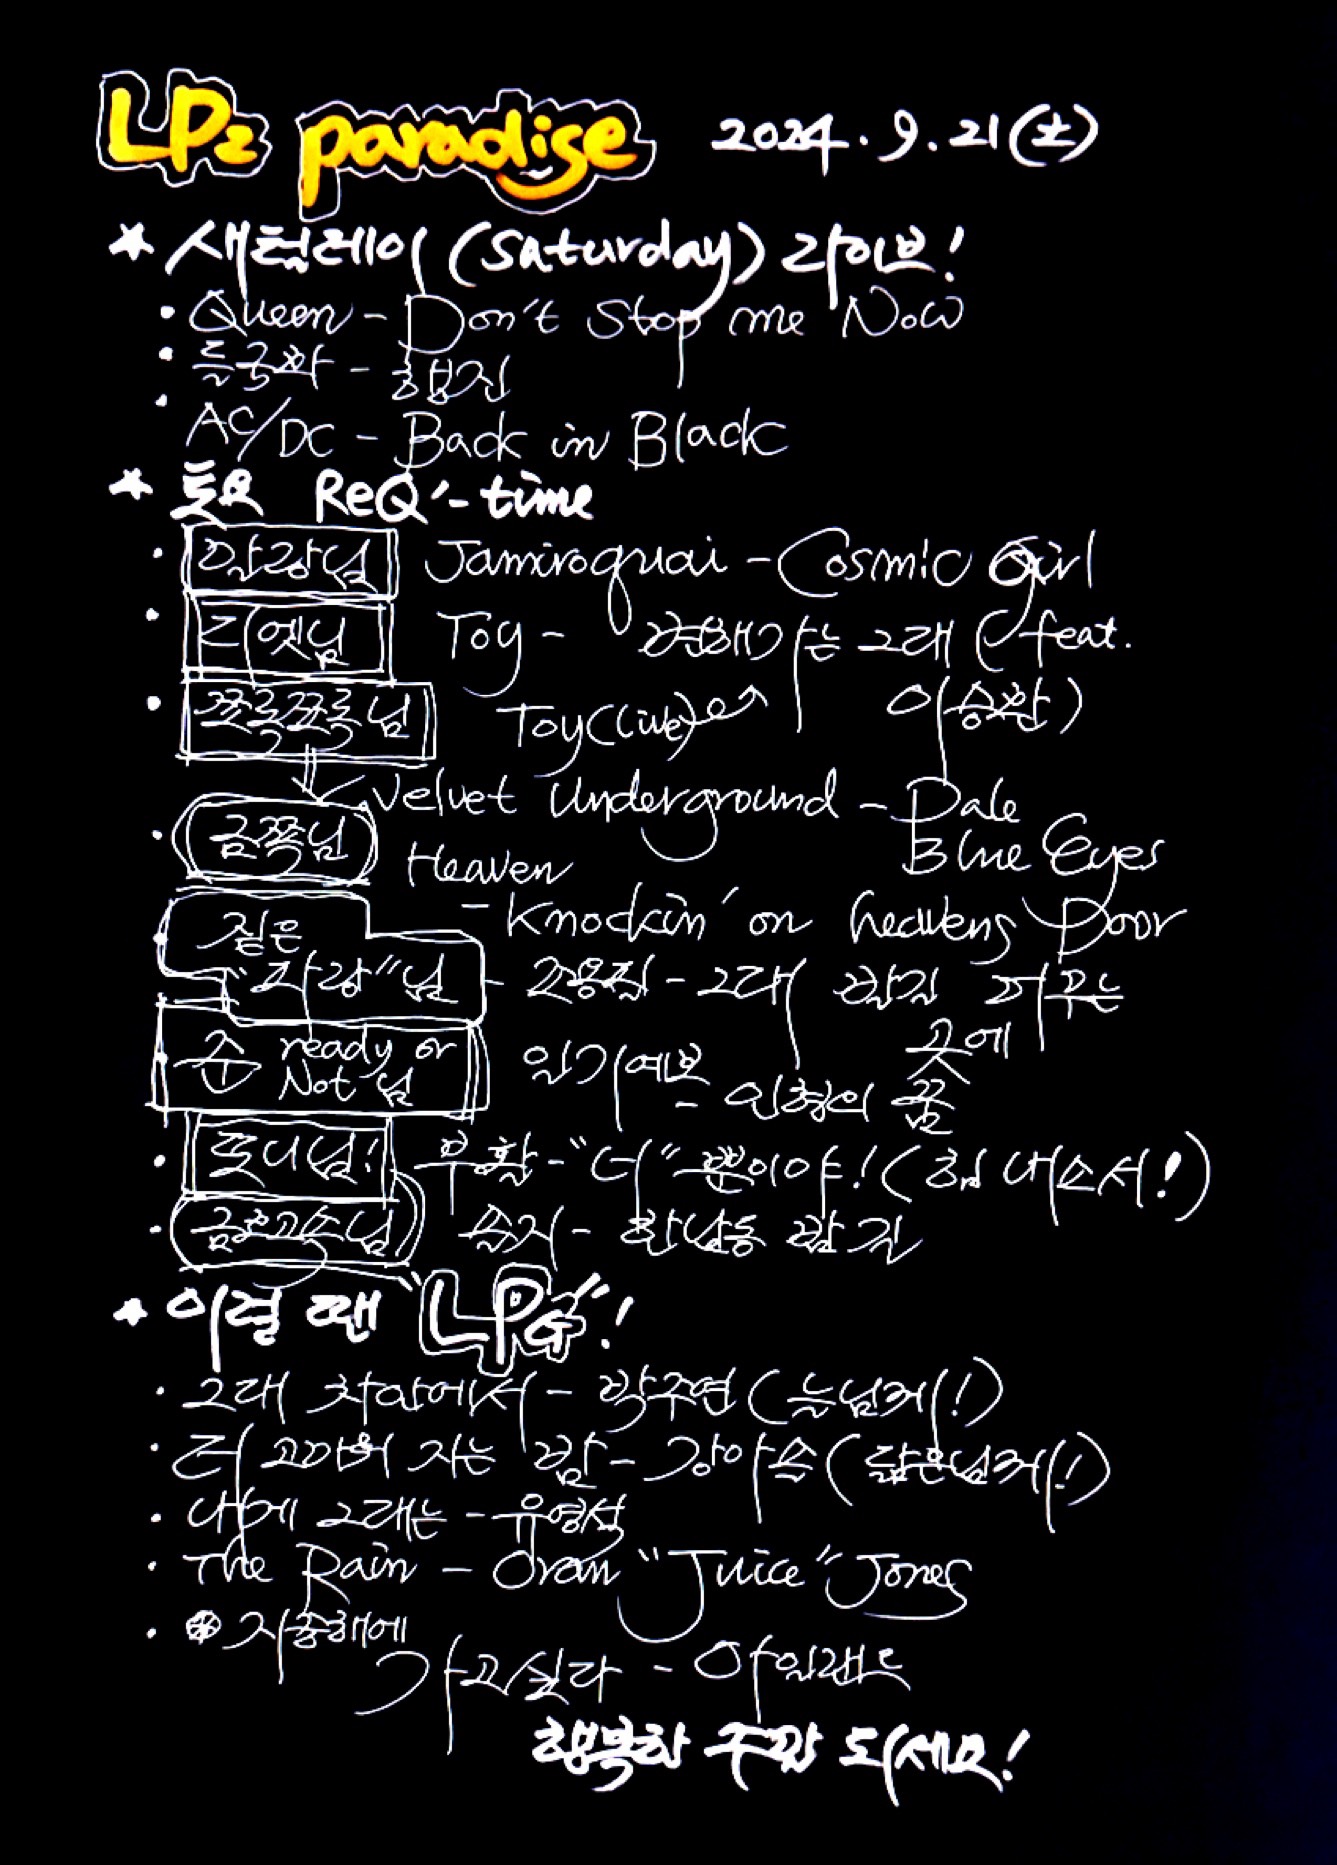 LPz paradise 2024.9.21(土)
★ 새털레이(Saturday) 라이브!
• Queen - Don't Stop me Now
• 들국화 - 행진
• AC/DC - Back in Black
★ 토요 ReQ'-time
• 님 Jamiroquai - Cosmic Girl
• 리엣님 Toy - 그대 (feat.
• 쪼록쪼록님 Toy(live) 이승환)
Velvet Underground - Pale
Blue Eyes
• 금쪽님 Heaven
- Knockin' on heavens Door
• 짙은
"파랑"님 - 조용필 - 그대 발길 머무는
곳에
• 순 ready or
Not 님 일기예보 - 인형의 꿈
• 토니님! 부활 - "너"뿐이야! (힘 내소서!)
• 님 - 한남동 밤 길
★ 이럴 땐 "LPG"!
• 그대 창가에서 - 박주연 (늘님께!)
• 자는 밤 - 강아솔 (닮은님께!)
• 나에 그대는 - 유영석
• The Rain - Oran "Juice" Jones
• 지중해에
가고싶다 -
행복한 주말 되세요!